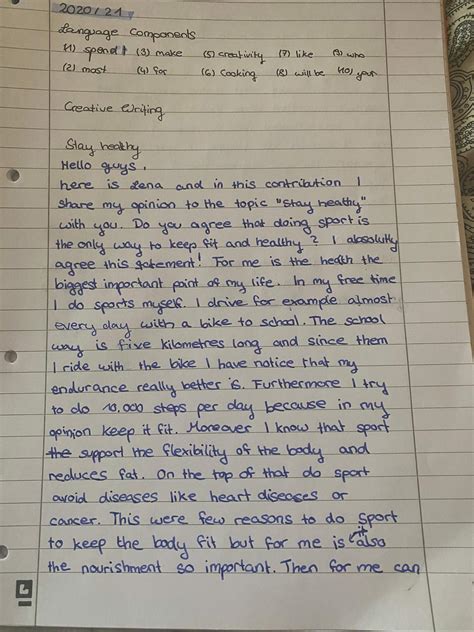 2020/21
Language Components
(1) spend (3) make (5) creativity (7) like (9) who
(2) most (4) for (6) Cooking (8) will be (10) your
Creative Writing
Stay healthy
Hello guys,
here is Lena and in this contribution I
share my opinion to the topic "Stay heathy"
with you. Do you agree that doing sport is
the only way to keep fit and healthy? I absolutly
agree this statement! For me is the health the
biggest important point of my life. In my free time
I do sports myself. I drive for example almost
every day with a bike to school. The school
way is five kilometres long and since them
I ride with the bike I have notice that my
endurance really better is. Furthermore I try
to do 10.000 steps per day because in my
opinion keep it fit. Moreover I know that sport
the support the flexibility of the body and
reduces fat. On the top of that do sport
avoid diseases like heart diseases or
cancer. This were few reasons to do sport
to keep the body fit but for me is it also
the nourishment so important. Then for me can